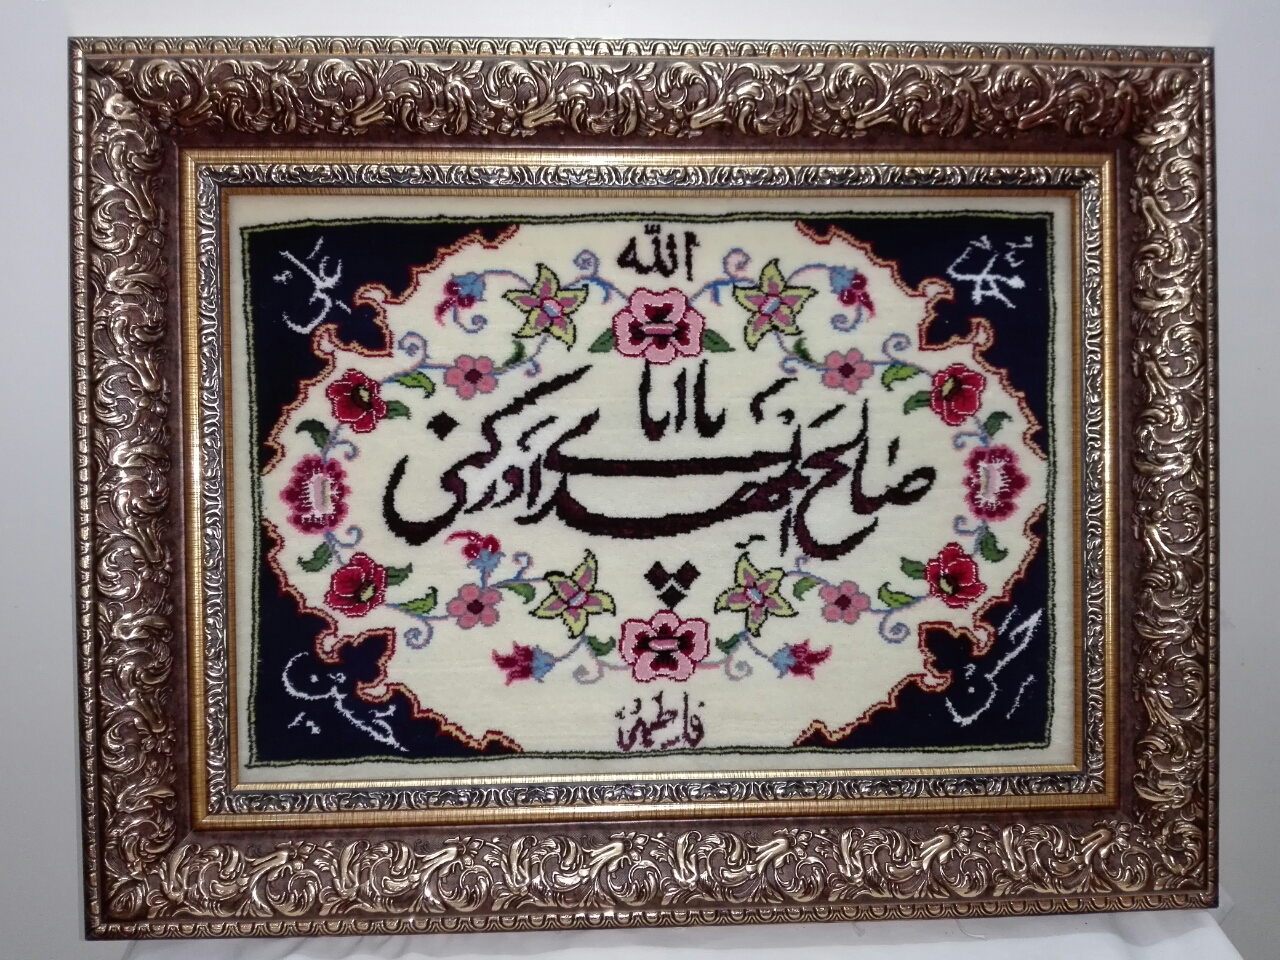 الله
محمد
علی
یا ابا
صالح المهدی ادرکنی
حسن
حسین
فاطمة